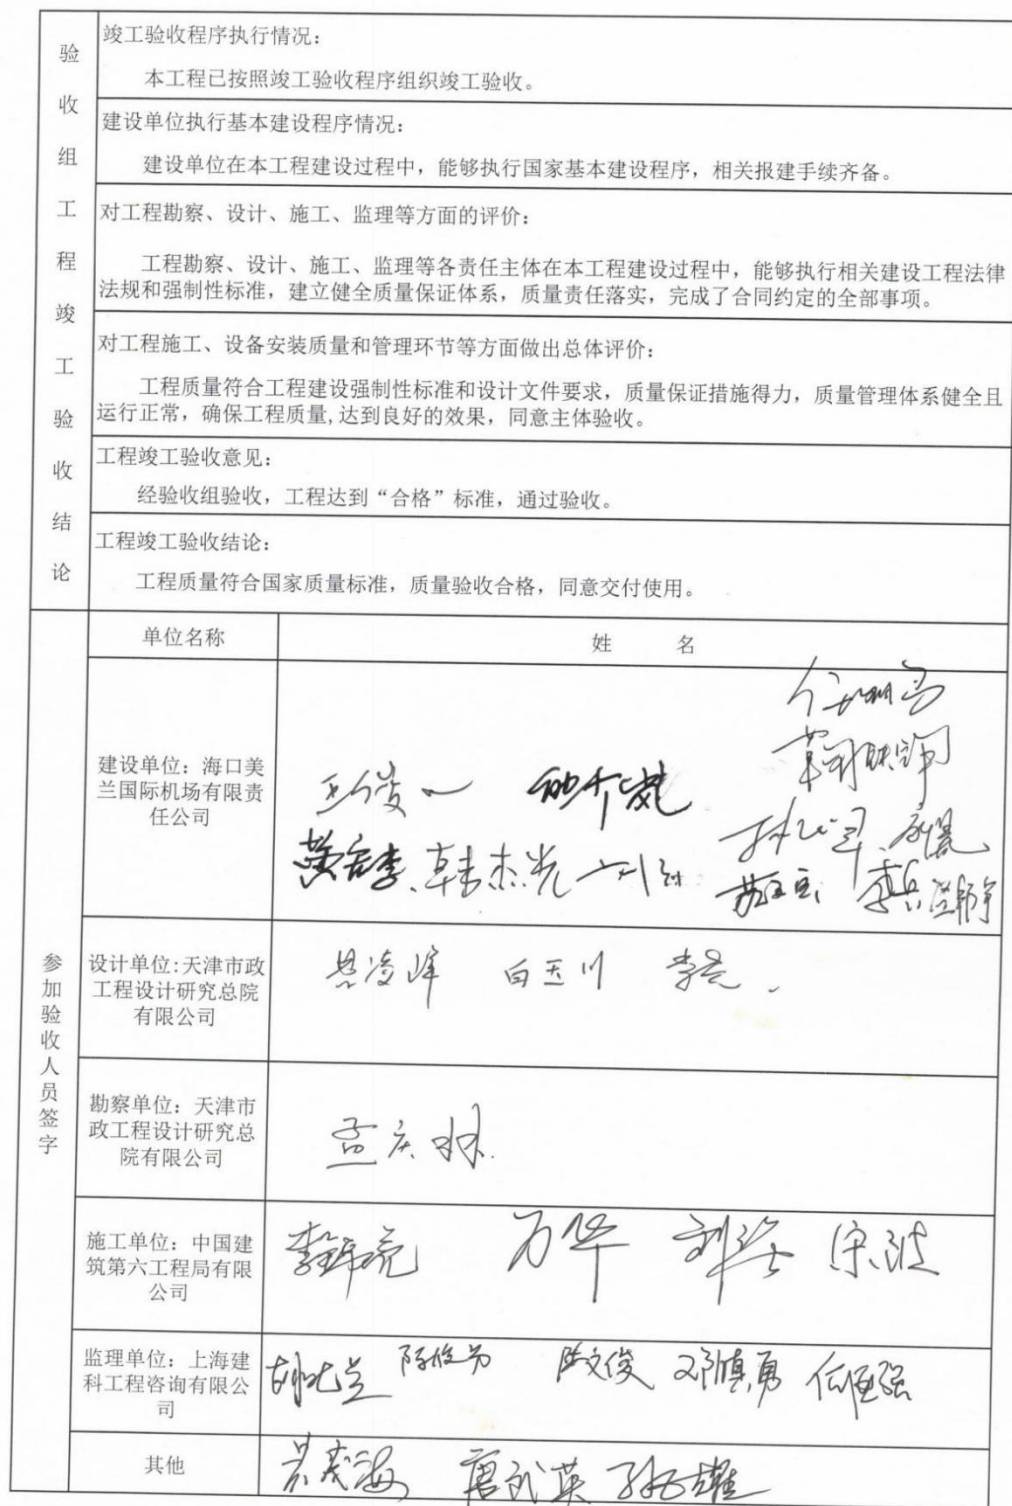 验收组工程竣工验收结论
竣工验收程序执行情况：
本工程已按照竣工验收程序组织竣工验收。
建设单位执行基本建设程序情况：
建设单位在本工程建设过程中，能够执行国家基本建设程序，相关报建手续齐备。
对工程勘察、设计、施工、监理等方面的评价：
工程勘察、设计、施工、监理等各责任主体在本工程建设过程中，能够执行相关建设工程法律
法规和强制性标准，建立健全质量保证体系，质量责任落实，完成了合同约定的全部事项。
对工程施工、设备安装质量和管理环节等方面做出总体评价：
工程质量符合工程建设强制性标准和设计文件要求，质量保证措施得力，质量管理体系健全且
运行正常，确保工程质量,达到良好的效果，同意主体验收。
工程竣工验收意见：
经验收组验收，工程达到“合格”标准，通过验收。
工程竣工验收结论：
工程质量符合国家质量标准，质量验收合格，同意交付使用。
参加验收人员签字
单位名称
姓 名
建设单位：海口美
兰国际机场有限责
任公司
韩杰光
设计单位:天津市政
工程设计研究总院
有限公司
白玉川
勘察单位：天津市
政工程设计研究总
院有限公司
孟庆林
施工单位：中国建
筑第六工程局有限
公司
万华
监理单位：上海建
科工程咨询有限公
司
陆文俊 邓慎勇
其他
唐武英